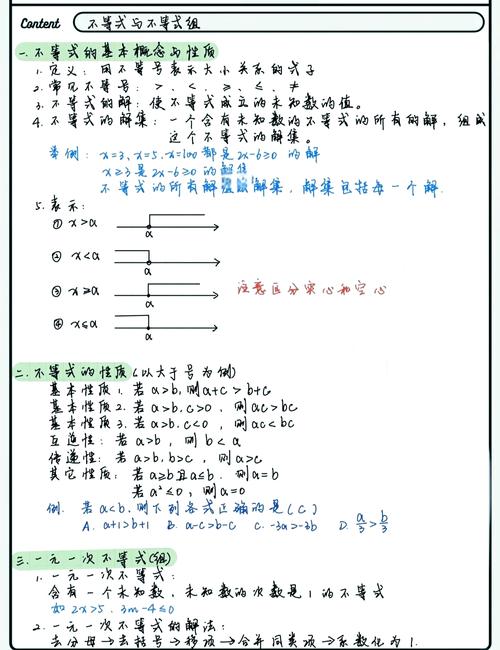 Content 不等式与不等式组
一.不等式的基本概念与性质
1.定义:用不等号表示大小关系的式子
2.常见不等号:>、<、≥、≤、≠
3.不等式的解:使不等式成立的未知数的值。
4.不等式的解集:一个含有未知数的不等式的所有的解,组成
这个不等式的解集。
举例:x=3、x=5、x=100都是2x-6≥0的解
x≥3是2x-6≥0的解集
不等式的所有解 解集,解集包括每一个解.
5.表示:
① x>a
a
② x<a
a
③ x≥a 注意区分实心和空心
a
④ x≤a
a
二.不等式的性质(以大于号为例)
基本性质1.若a>b,则a+c>b+c
基本性质2.若a>b.c>0,则ac>bc
基本性质3.若a>b.c<0,则ac<bc
互逆性:若a>b,则b<a
传递性:若a>b,b>c,则a>c
其它性质:若a≥b且a≤b.则a=b
若a²≤0,则a=0
例.若a<b.则下列各式正确的是(C)
A. a+1>b+1 B. a-c>b-c C. -3a>-3b D. a/3>b/3
三.一元一次不等式(组)
1.一元一次不等式:
含有一个未知数,未知数的次数是1的不等式
如2x>5.3m-4≤0
2.一元一次不等式的解法:
去分母→去括号→移项→合并同类项→系数化为1.